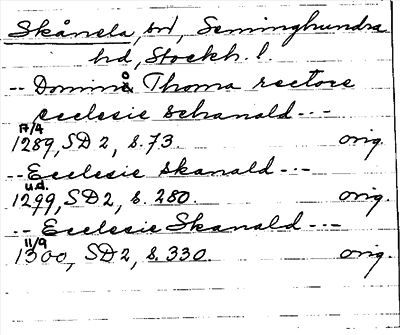 Skånela, sn, Seminghundra
hd, Stockh. l.
-- Domino Thoma rectore
ecclesie schanald ---
17/4
1289, SD 2, s. 73. orig.
-- Ecclesie skanald ---
u.d.
1299, SD 2, s. 280. orig.
-- Ecclesie Skanald ---
11/9
1300, SD 2, s. 330. orig.